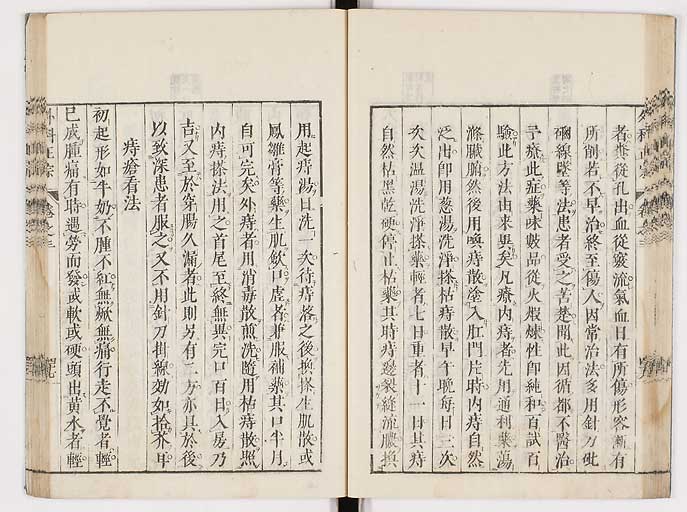 者糞從孔出血從竅流氣血日有所傷形容漸有
所削若不早治終至傷人因常治法多用針刀砒
硇線墜等法患者受之苦楚聞此因循都不醫治
予療此症藥味數品從火煆煉性卽純和百試百
驗此方法由來異矣凡療內痔者先用通利藥蕩
滌臟腑然後用喚痔散塗入肛門片時內痔自然
泛出卽用葱湯洗淨搽枯痔散早午晚每日三次
次次温湯洗淨搽藥輕者七日重者十一日其痔
自然枯黑乾硬停止枯藥其時痔邊裂縫流膿換
用起痔湯日洗一次待痔落之後換搽生肌散或
鳳雛膏等藥生肌斂口虛者兼服補藥其口半月
自可完矣外痔者用消毒散煎洗隨用枯痔散照
內痔搽法用之首尾至終無異完口百日入房乃
吉又至於穿腸久漏者此則另有二方亦具於後
以致深患者服之又不用針刀掛線効如拾芥耳
痔瘡看法
初起形如牛奶不腫不紅無㾮無痛行走不覺者輕
已成腫痛有時遇勞而發或軟或硬頭出黃水者輕
外科正宗